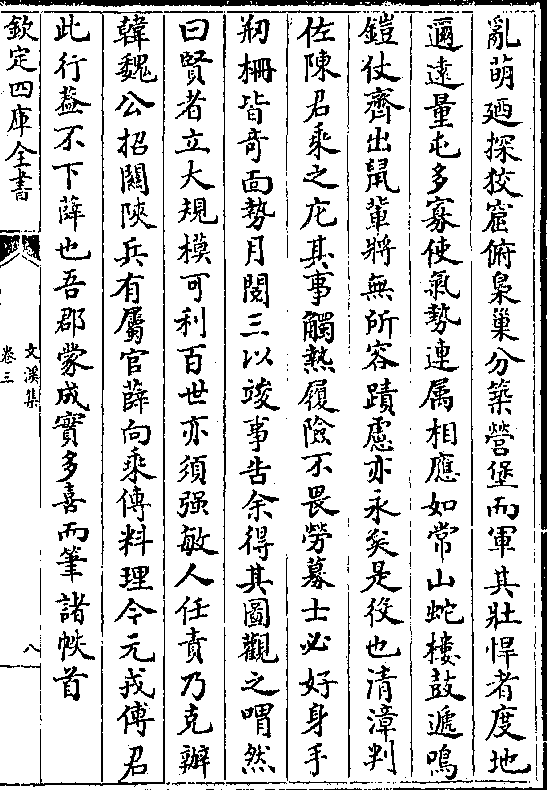 亂萌廼探狡窟俯梟巢分築營堡而軍其壯悍者度地
邇遠量屯多寡使氣勢連属相應如常山蛇樓鼓遞鳴
鎧仗齊出鼠輩將無所容蹟慮亦永矣是役也清漳判
佐陳君乘之庀其事觸熱履險不畏勞募士必好身手
剏柵皆奇面勢月閱三以竣事告余得其圖觀之喟然
曰賢者立大規模可利百世亦須强敏人任責乃克辦
韓魏公招關陝兵有屬官薛向乘傳料理今元戎傅君
此行葢不下薛也吾郡蒙成實多喜而筆諸帙首
欽定四庫全書
文溪集
卷三
八